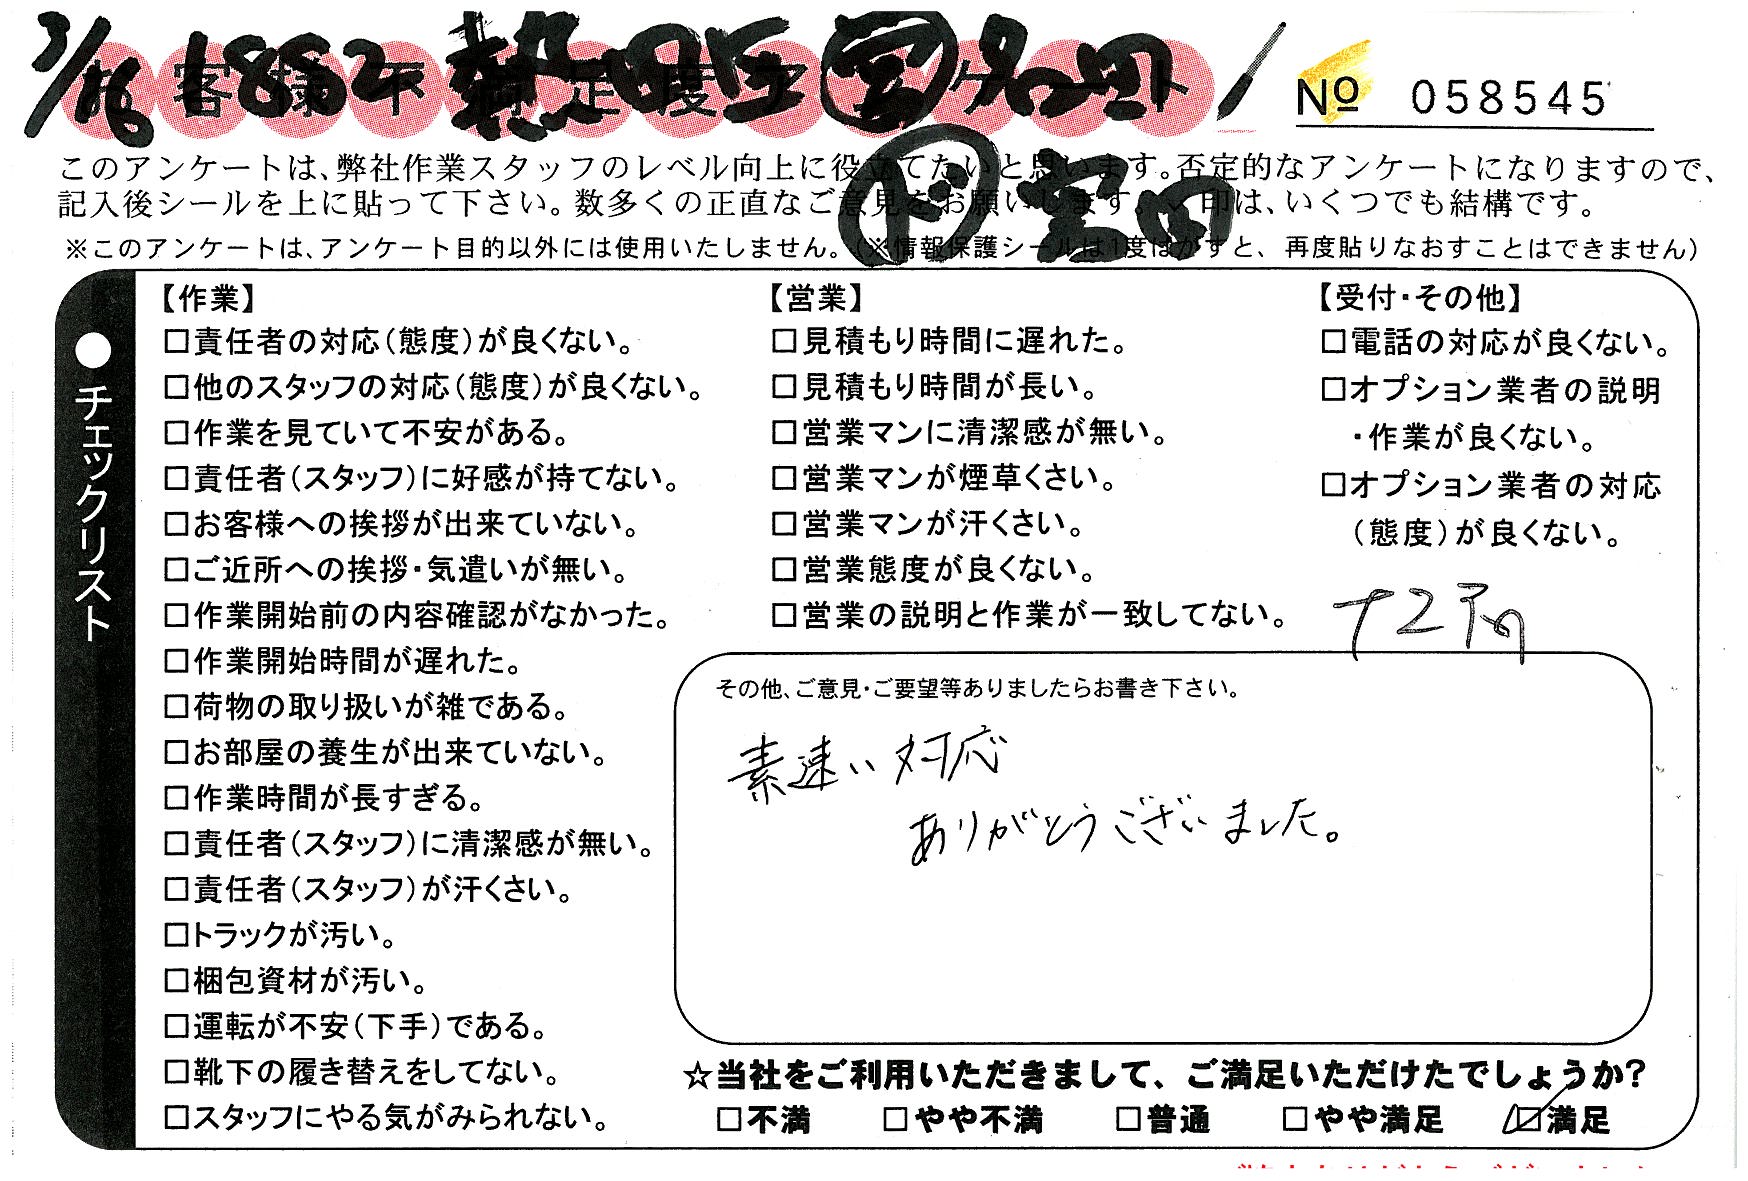 3/16 1882
お客様不満足度アンケート
№ 058545
このアンケートは、弊社作業スタッフのレベル向上に役立てたいと思います。否定的なアンケートになりますので、
記入後シールを上に貼って下さい。数多くの正直なご意見をお願いします。✓印は、いくつでも結構です。
※このアンケートは、アンケート目的以外には使用いたしません。(※情報保護シールは1度はがすと、再度貼りなおすことはできません)
●チェックリスト
【作業】
□責任者の対応(態度)が良くない。
□他のスタッフの対応(態度)が良くない。
□作業を見ていて不安がある。
□責任者(スタッフ)に好感が持てない。
□お客様への挨拶が出来ていない。
□ご近所への挨拶・気遣いが無い。
□作業開始前の内容確認がなかった。
□作業開始時間が遅れた。
□荷物の取り扱いが雑である。
□お部屋の養生が出来ていない。
□作業時間が長すぎる。
□責任者(スタッフ)に清潔感が無い。
□責任者(スタッフ)が汗くさい。
□トラックが汚い。
□梱包資材が汚い。
□運転が不安(下手)である。
□靴下の履き替えをしてない。
□スタッフにやる気がみられない。
【営業】
□見積もり時間に遅れた。
□見積もり時間が長い。
□営業マンに清潔感が無い。
□営業マンが煙草くさい。
□営業マンが汗くさい。
□営業態度が良くない。
□営業の説明と作業が一致してない。
【受付・その他】
□電話の対応が良くない。
□オプション業者の説明
・作業が良くない。
□オプション業者の対応
(態度)が良くない。
その他、ご意見・ご要望等ありましたらお書き下さい。
素速い対応
ありがとうございました。
☆当社をご利用いただきまして、ご満足いただけたでしょうか?
□不満 □やや不満 □普通 □やや満足 ☑満足